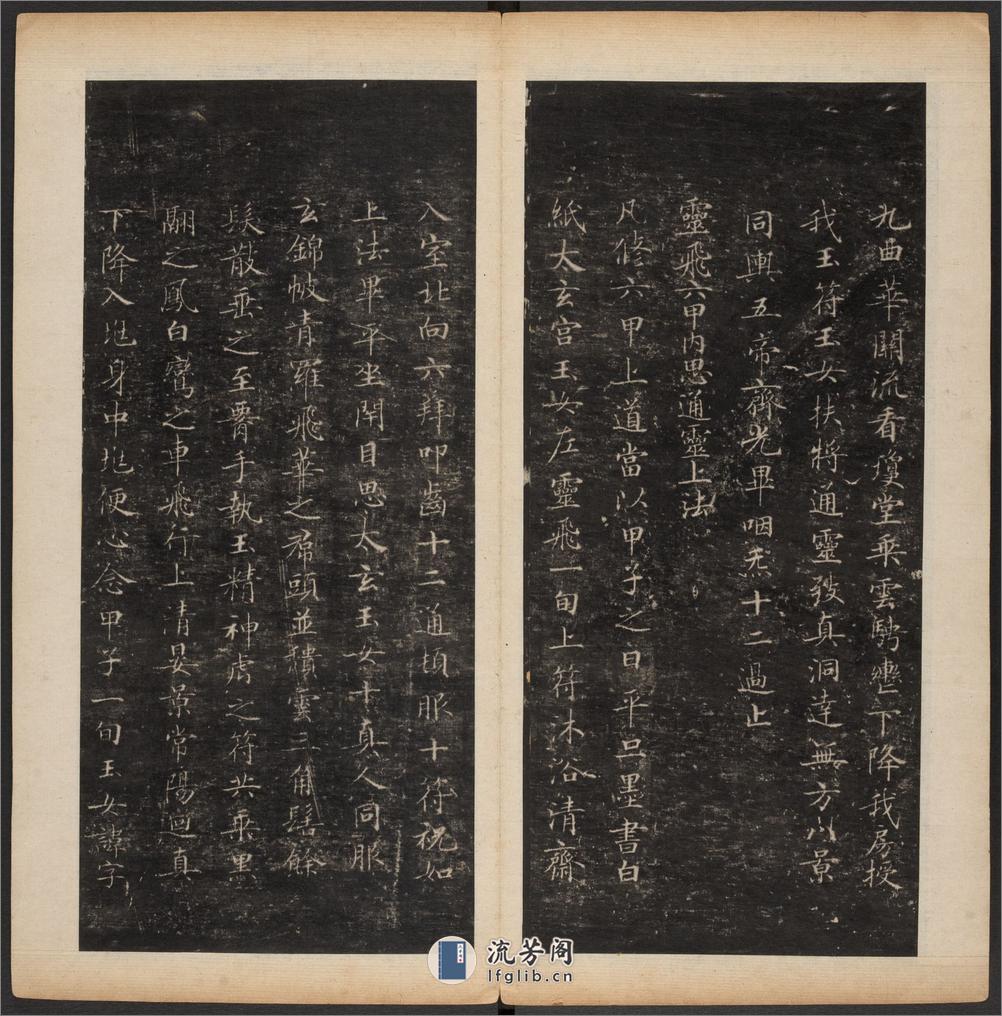 九曲華關流看瓊堂乘雲騁轡下降我房授
我玉符玉女扶將通靈致真洞達無方八景
同輿五帝齊光畢咽炁十二過止
靈飛六甲內思通靈上法
凡修六甲上道當以甲子之日平旦墨書白
紙太玄宮玉女左靈飛一旬上符沐浴清齋
入室北向六拜叩齒十二通頓服十符祝如
上法畢平坐閉目思太玄玉女十真人同服
玄錦帔青羅飛華之帬頭並穨雲三角髻餘
髮散垂之至腰手執玉精神虎之符共乘黑
翮之鳳白鸞之車飛行上清晏景常陽迴真
下降入地身中地便心念甲子一旬玉女諱字
流芳阁
lfglib.cn